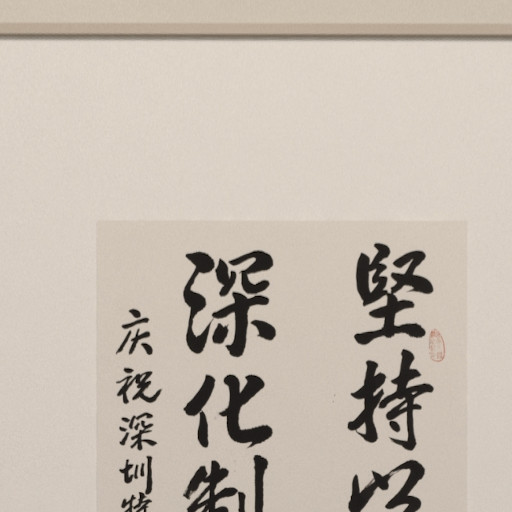 坚持以
深化制
庆祝深圳特